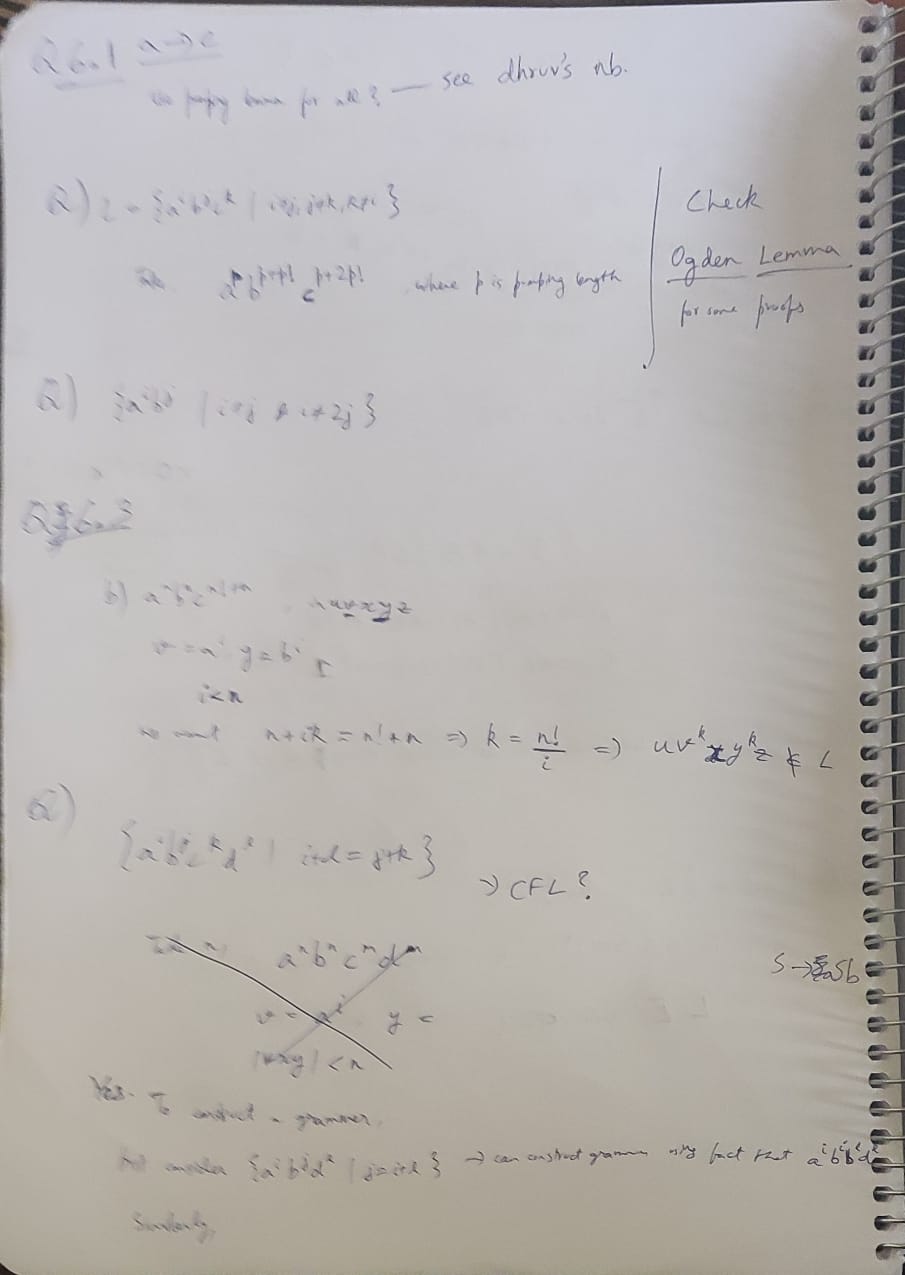 Q 6.1 a→e
Use pumping lemma for all? — see dhruv's nb.
Q) L = {aⁱbʲcᵏ | i≠j, j≠k, k≠i}
aᵖ bᵖ⁺ᵖ! cᵖ⁺²ᵖ! where p is pumping length
Check
Ogden Lemma
for some proofs
Q) {aⁱbʲ | i≠j & i≠2j}
Q 6.3
b) aⁿbⁿcⁿ!⁺ⁿ uvxyz
v = aⁱ y = bⁱ
i<n
we want n+ik = n!+n ⇒ k = n!/i ⇒ uvᵏxyᵏz ∉ L
Q)
{aⁱbʲcᵏdˡ | i+l = j+k}
→ CFL?
aⁿbⁿcⁿdⁿ
S → aSb
v = aⁱ y =
|vxy| < n
Yes. To construct a grammer,
consider {aⁱbʲdˡ | j=i+l} → can construct grammer using fact that aⁱbⁱbˡdˡ
Similarly,